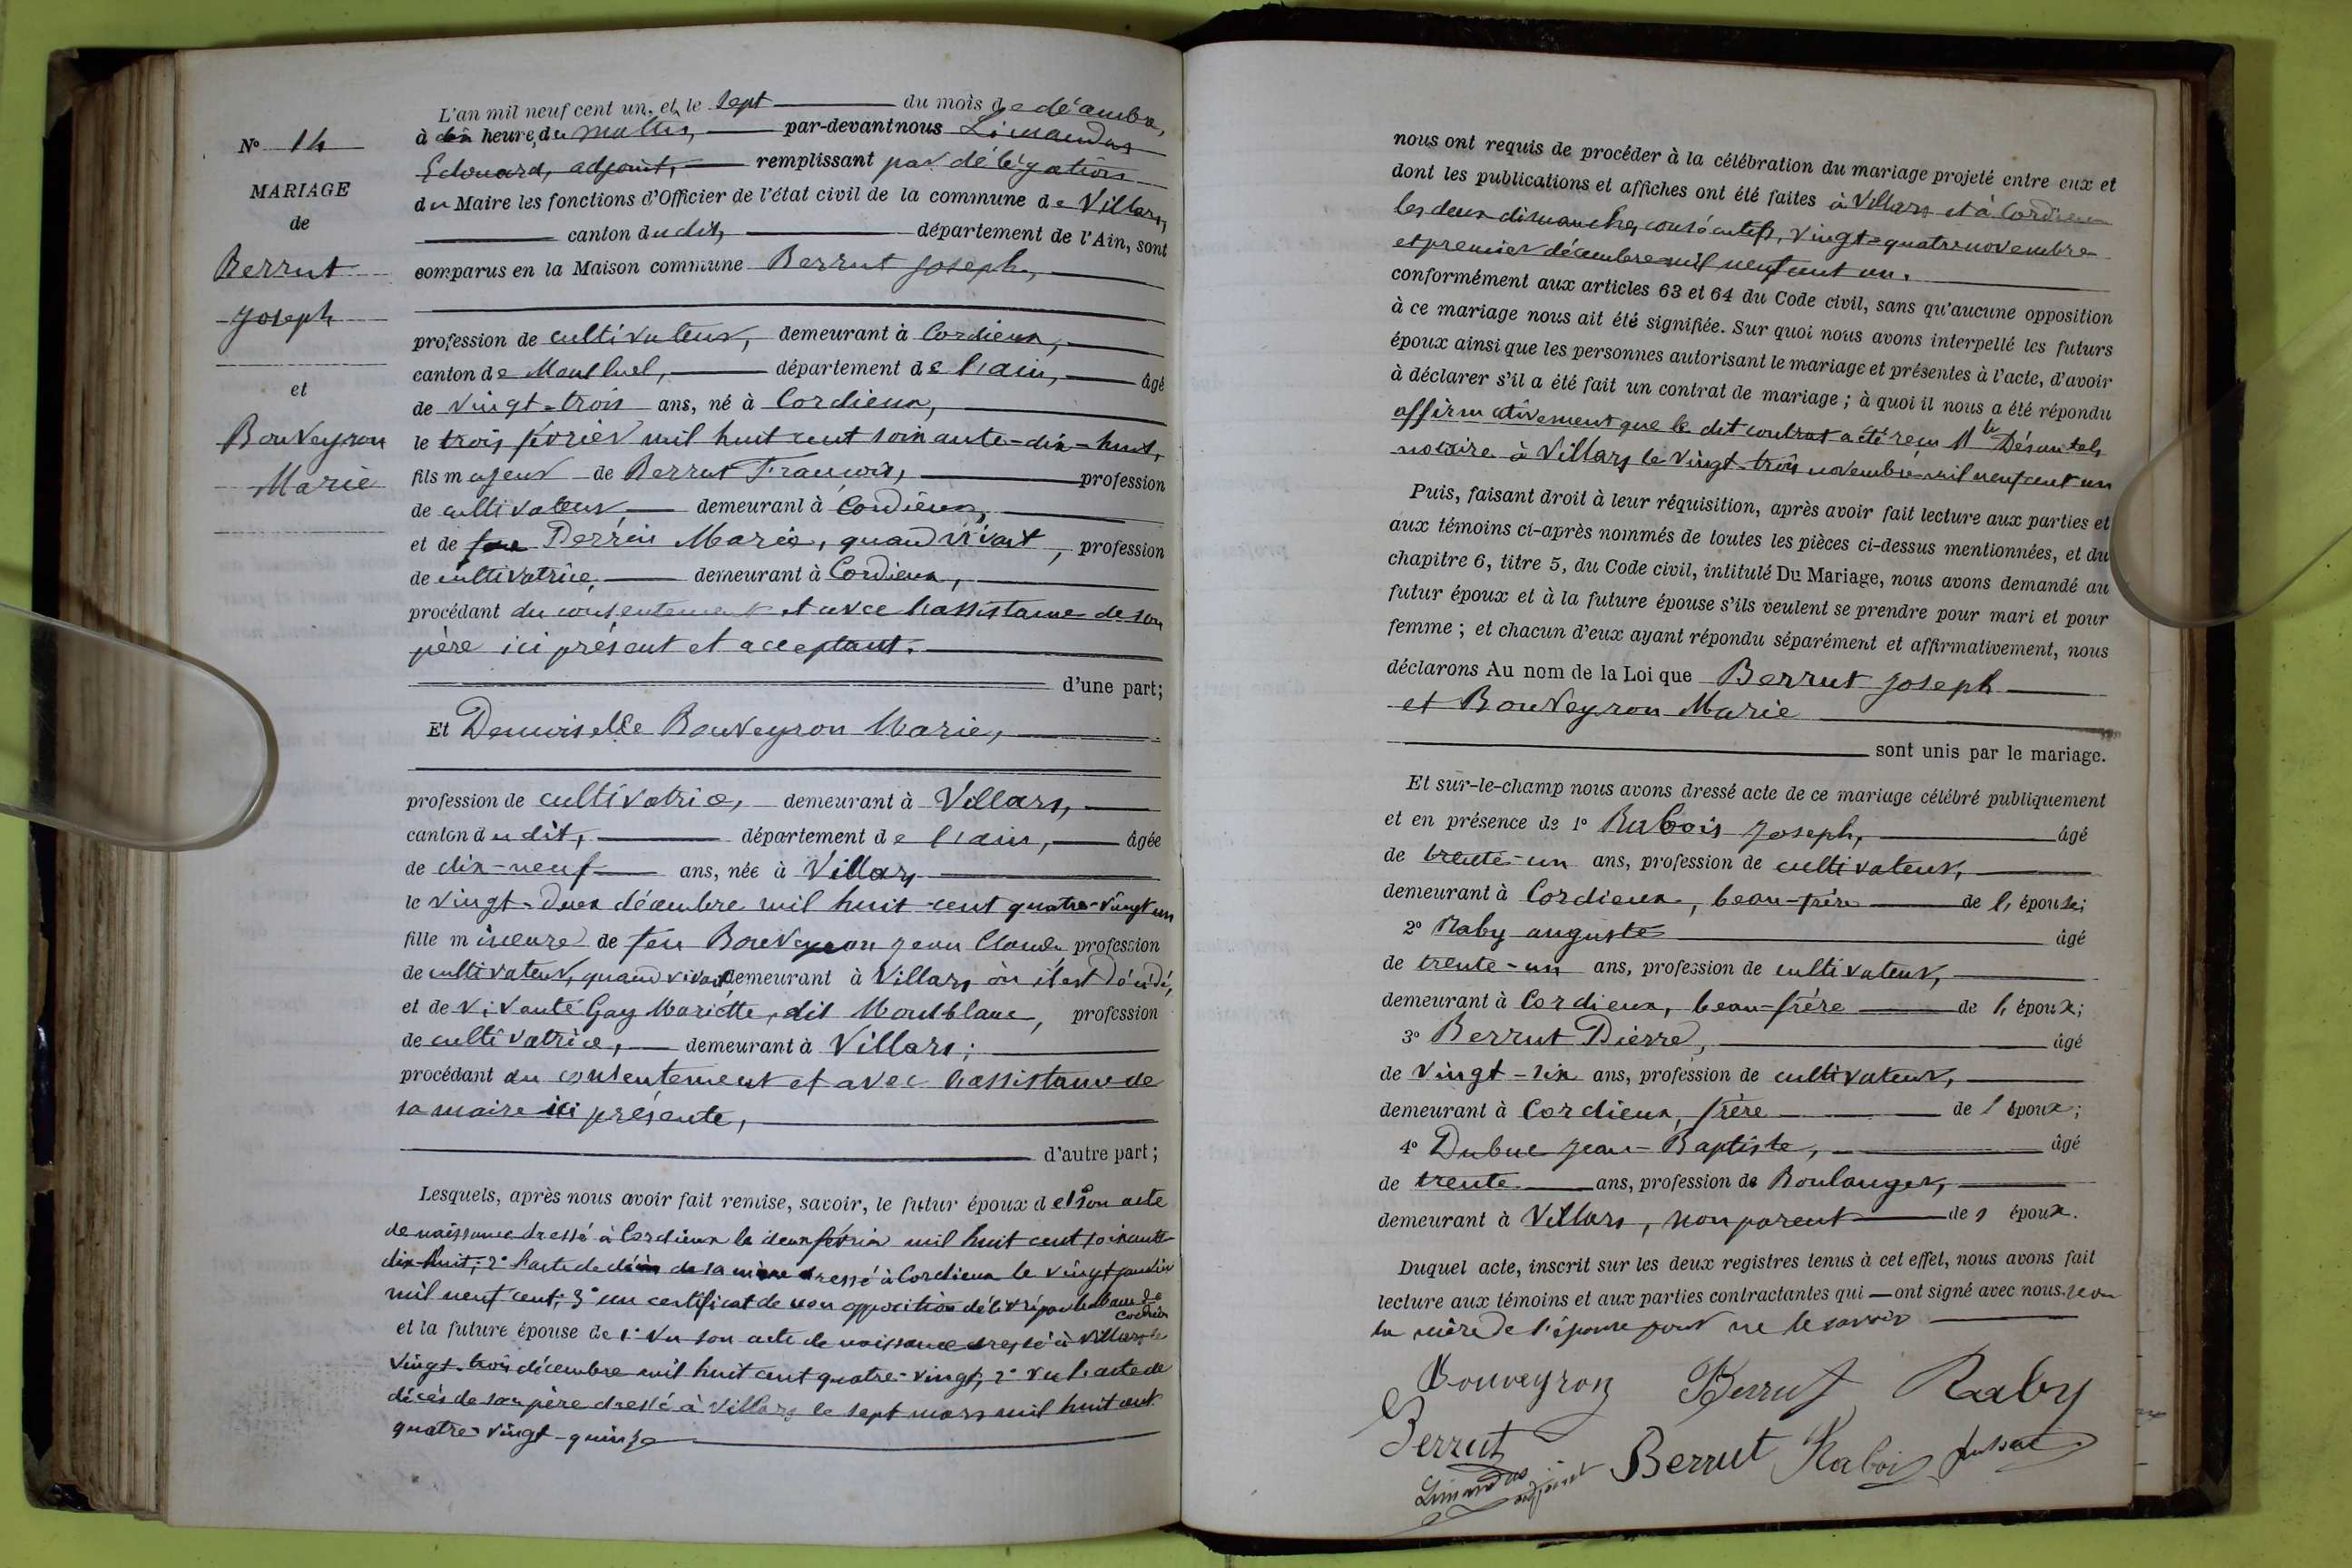 N° 14
MARIAGE
de
Berrut
Joseph
et
Bouveyron
Marie
L'an mil neuf cent un, et le sept du mois de décembre,
à dix heures du matin, par-devant nous Limandas
Edouard, adjoint, remplissant par délégation
du Maire les fonctions d'Officier de l'état civil de la commune de Villars,
canton du dit, département de l'Ain, sont
comparus en la Maison commune Berrut Joseph,
profession de cultivateur, demeurant à Cordieux,
canton de Montluel, département de l'ain, âgé
de vingt-trois ans, né à Cordieux,
le trois février mil huit cent soixante-dix-huit,
fils majeur de Berrut François, profession
de cultivateur, demeurant à Cordieux,
et de feue Perrin Marie, quand vivait, profession
de cultivatrice, demeurant à Cordieux,
procédant du consentement et avec l'assistance de son
père ici présent et acceptant.
d'une part;
Et Demoiselle Bouveyron Marie,
profession de cultivatrice, demeurant à Villars,
canton du dit, département de l'ain, âgée
de dix-neuf ans, née à Villars
le vingt-deux décembre mil huit cent quatre-vingt un
fille mineure de feu Bouveyron Jean Claude, profession
de cultivateur, quand vivait, demeurant à Villars où il est décédé,
et de vivante Gay Mariette, dit Montblanc, profession
de cultivatrice, demeurant à Villars;
procédant du consentement et avec l'assistance de
sa maire ici présente,
d'autre part;
Lesquels, après nous avoir fait remise, savoir, le futur époux de 1° son acte
de naissance dressé à Cordieux le deux février mil huit cent soixante-
dix-huit; 2° l'acte de décès de sa mère dressé à Cordieux le vingt janvier
mil neuf cent; 3° un certificat de non opposition délivré par le Maire de
Cordieux
et la future épouse de 1° vu son acte de naissance dressé à Villars le
vingt-trois décembre mil huit cent quatre-vingt; 2° vu l'acte de
décès de son père dressé à Villars le sept mars mil huit cent
quatre-vingt-quinze
nous ont requis de procéder à la célébration du mariage projeté entre eux et
dont les publications et affiches ont été faites à Villars et à Cordieux
les deux dimanches consécutifs, vingt-quatre novembre
et premier décembre mil neuf cent un.
conformément aux articles 63 et 64 du Code civil, sans qu'aucune opposition
à ce mariage nous ait été signifiée. Sur quoi nous avons interpellé les futurs
époux ainsi que les personnes autorisant le mariage et présentes à l'acte, d'avoir
à déclarer s'il a été fait un contrat de mariage; à quoi il nous a été répondu
affirmativement que le dit contrat a été reçu Mtre Désautels
notaire à Villars le vingt-trois novembre mil neuf cent un
Puis, faisant droit à leur réquisition, après avoir fait lecture aux parties et
aux témoins ci-après nommés de toutes les pièces ci-dessus mentionnées, et du
chapitre 6, titre 5, du Code civil, intitulé Du Mariage, nous avons demandé au
futur époux et à la future épouse s'ils veulent se prendre pour mari et pour
femme; et chacun d'eux ayant répondu séparément et affirmativement, nous
déclarons Au nom de la Loi que Berrut Joseph
et Bouveyron Marie
sont unis par le mariage.
Et sur-le-champ nous avons dressé acte de ce mariage célébré publiquement
et en présence de 1° Rabois Joseph, âgé
de trente-un ans, profession de cultivateur,
demeurant à Cordieux, beau-frère de l'épouse;
2° Raby auguste âgé
de trente-un ans, profession de cultivateur,
demeurant à Cordieux, beau-frère de l'époux;
3° Berrut Pierre, âgé
de vingt-six ans, profession de cultivateur,
demeurant à Cordieux, frère de l'époux;
4° Dubuc Jean-Baptiste, âgé
de trente ans, profession de Boulanger,
demeurant à Villars, non parent des époux.
Duquel acte, inscrit sur les deux registres tenus à cet effet, nous avons fait
lecture aux témoins et aux parties contractantes qui ont signé avec nous. non
la mère de l'épouse pour ne le savoir
Bouveyron Berrut Raby
Berrut Berrut Rabois
Limandas adjoint